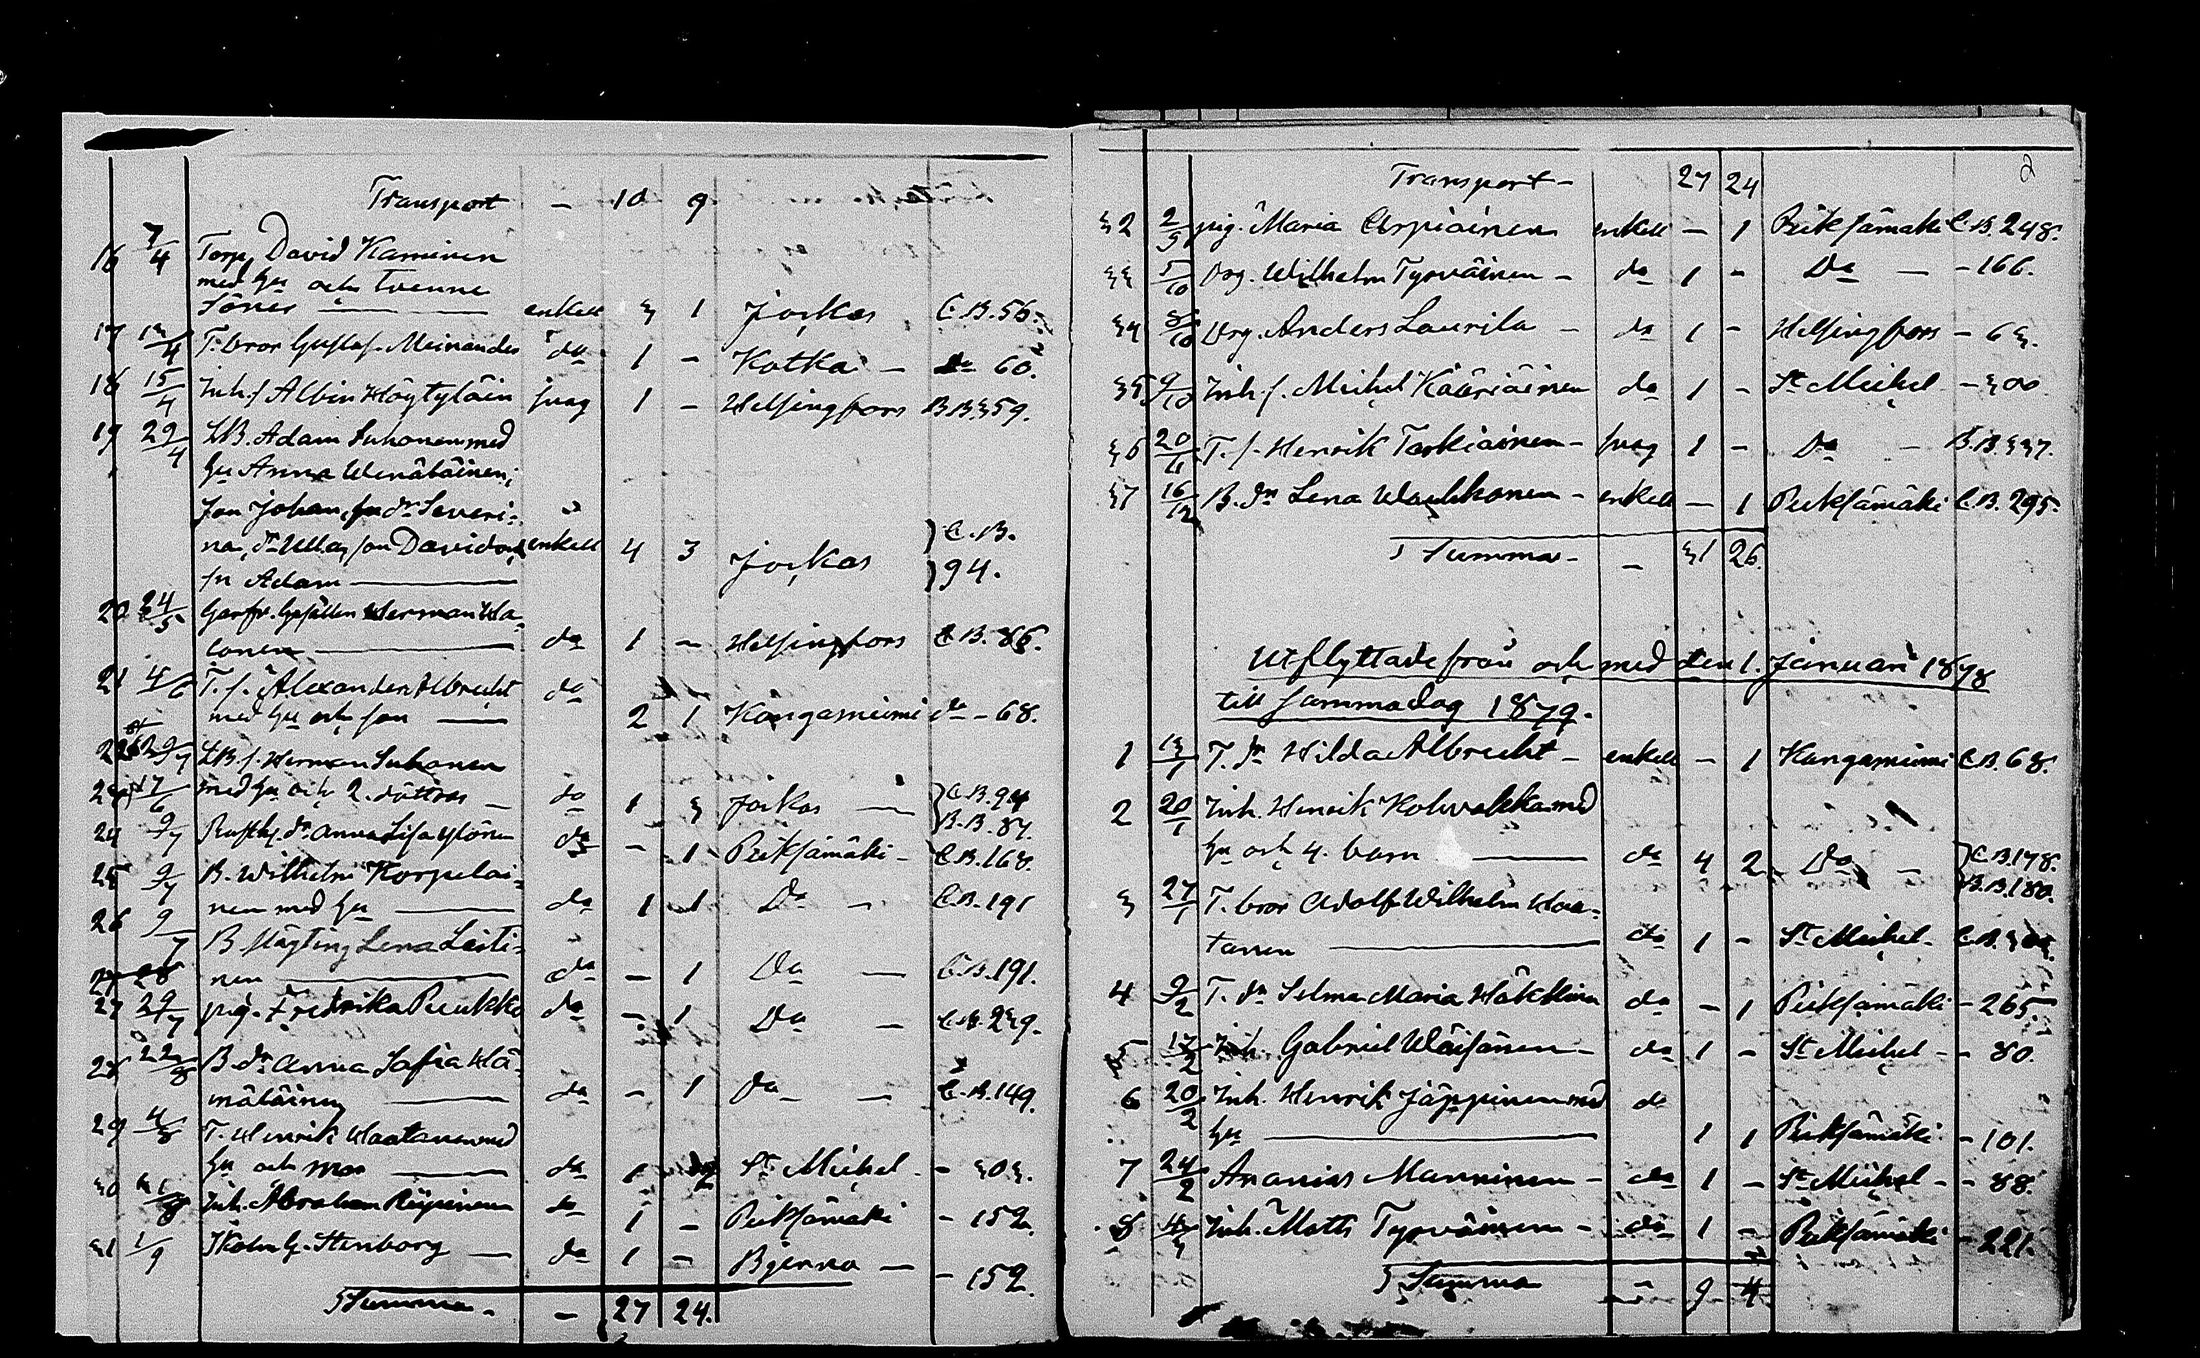 Transport - 10 9
16 7/4 Torp. David Kaminen
med hu och tvenne
söner enkelt 3 1 Jockas C.B. 56.
17 13/4 T. bror Gustaf Meinander do 1 - Kotka - do 60.
18 15/4 Inh. s. Albin Höytyläin svag 1 - Helsingfors B.B. 359.
19 29/4 LB. Adam Suhonen med
hu Anna Wenäläinen,
son Johan, dr Severi-
na, dr Ulla, son David och enkelt 4 3 Jockas } C.B.
sn Adam } 94.
20 24/5 Garfv. Gesällen Herman Ha-
lonen do 1 - Helsingfors C.B. 86.
21 4/6 T. s. Alexander Albrecht do
med hu och son 2 1 Kangasniemi do - 68.
22 29/7 LB. s. Herman Suhonen
med hu och 2. döttrar - do 1 3 Jockas } C.B. 94
17/6 } B.B. 87.
24 9/7 Rusth. dr Anna Lisa do - 1 Pieksämäki - C.B. 168.
25 9/7 B. Wilhelm Korpelai-
nen med hu do 1 1 Do - C.B. 191
26 9/7 B Lena Leiti-
nen do - 1 Do - C.B. 191.
27 28
27 29/7 pig. Fredrika Puukko do - 1 Do - C.B. 239.
28 22/8 B. dr Anna Sofia Hä-
mäläinen do - 1 Do - C.B. 149.
29 4/8 T. Henrik Haatanen med
hu och mor do 1 2 St Michel - 303.
30 Inh. Abraham do 1 - Pieksämäki - 152.
31 1/9 G. Stenborg - do 1 - Bjerno - - 152.
Summa - - 27 24.
2
Transport - 27 24
32 2/9 pig. Maria Arpiainen enkelt - 1 Pieksämäki C.B. 248.
33 5/10 Drg. Wilhelm Tyrväinen - do 1 - Do - - 166.
34 8/10 Drg. Anders Laurila - do 1 - Helsingfors - 63.
35 9/10 Inh. s. Michel Kääriäinen do 1 - St Michel - 300.
36 20/11 T. s. Henrik Tarkiainen - svag 1 - Do - B.B. 337.
37 16/12 B. dr Lena Wauhkonen - enkelt - 1 Pieksämäki C.B. 295.
Summa - - 31 26.
Utflyttade från och med den 1. Januari 1878
till samma dag 1879.
1 13/1 T. dr Hilda Albrecht - enkelt - 1 Kangasniemi C.B. 68.
2 20/1 Inh. Henrik Kolwakka med
hu och 4. barn do 4 2 Do - } C.B. 178.
} B.B. 180.
3 27/1 T. bror Adolf Wilhelm Haa-
tanen do 1 - St Michel - C.B. 303.
4 9/2 T. dr Selma Maria Häkkinen do - 1 Pieksämäki - 265.
5 17/2 Inh. Gabriel Wäisänen - do 1 - St Michel - - 80.
6 20/2 Inh. Henrik Jäppinen med do
hu 1 1 Pieksämäki - 101.
7 24/2 Ananias Manninen - do 1 - St Michel - - 88.
8 4/3 Inh. Matts Tyrväinen - do 1 - Pieksämäki - 221.
Summa - 9 4